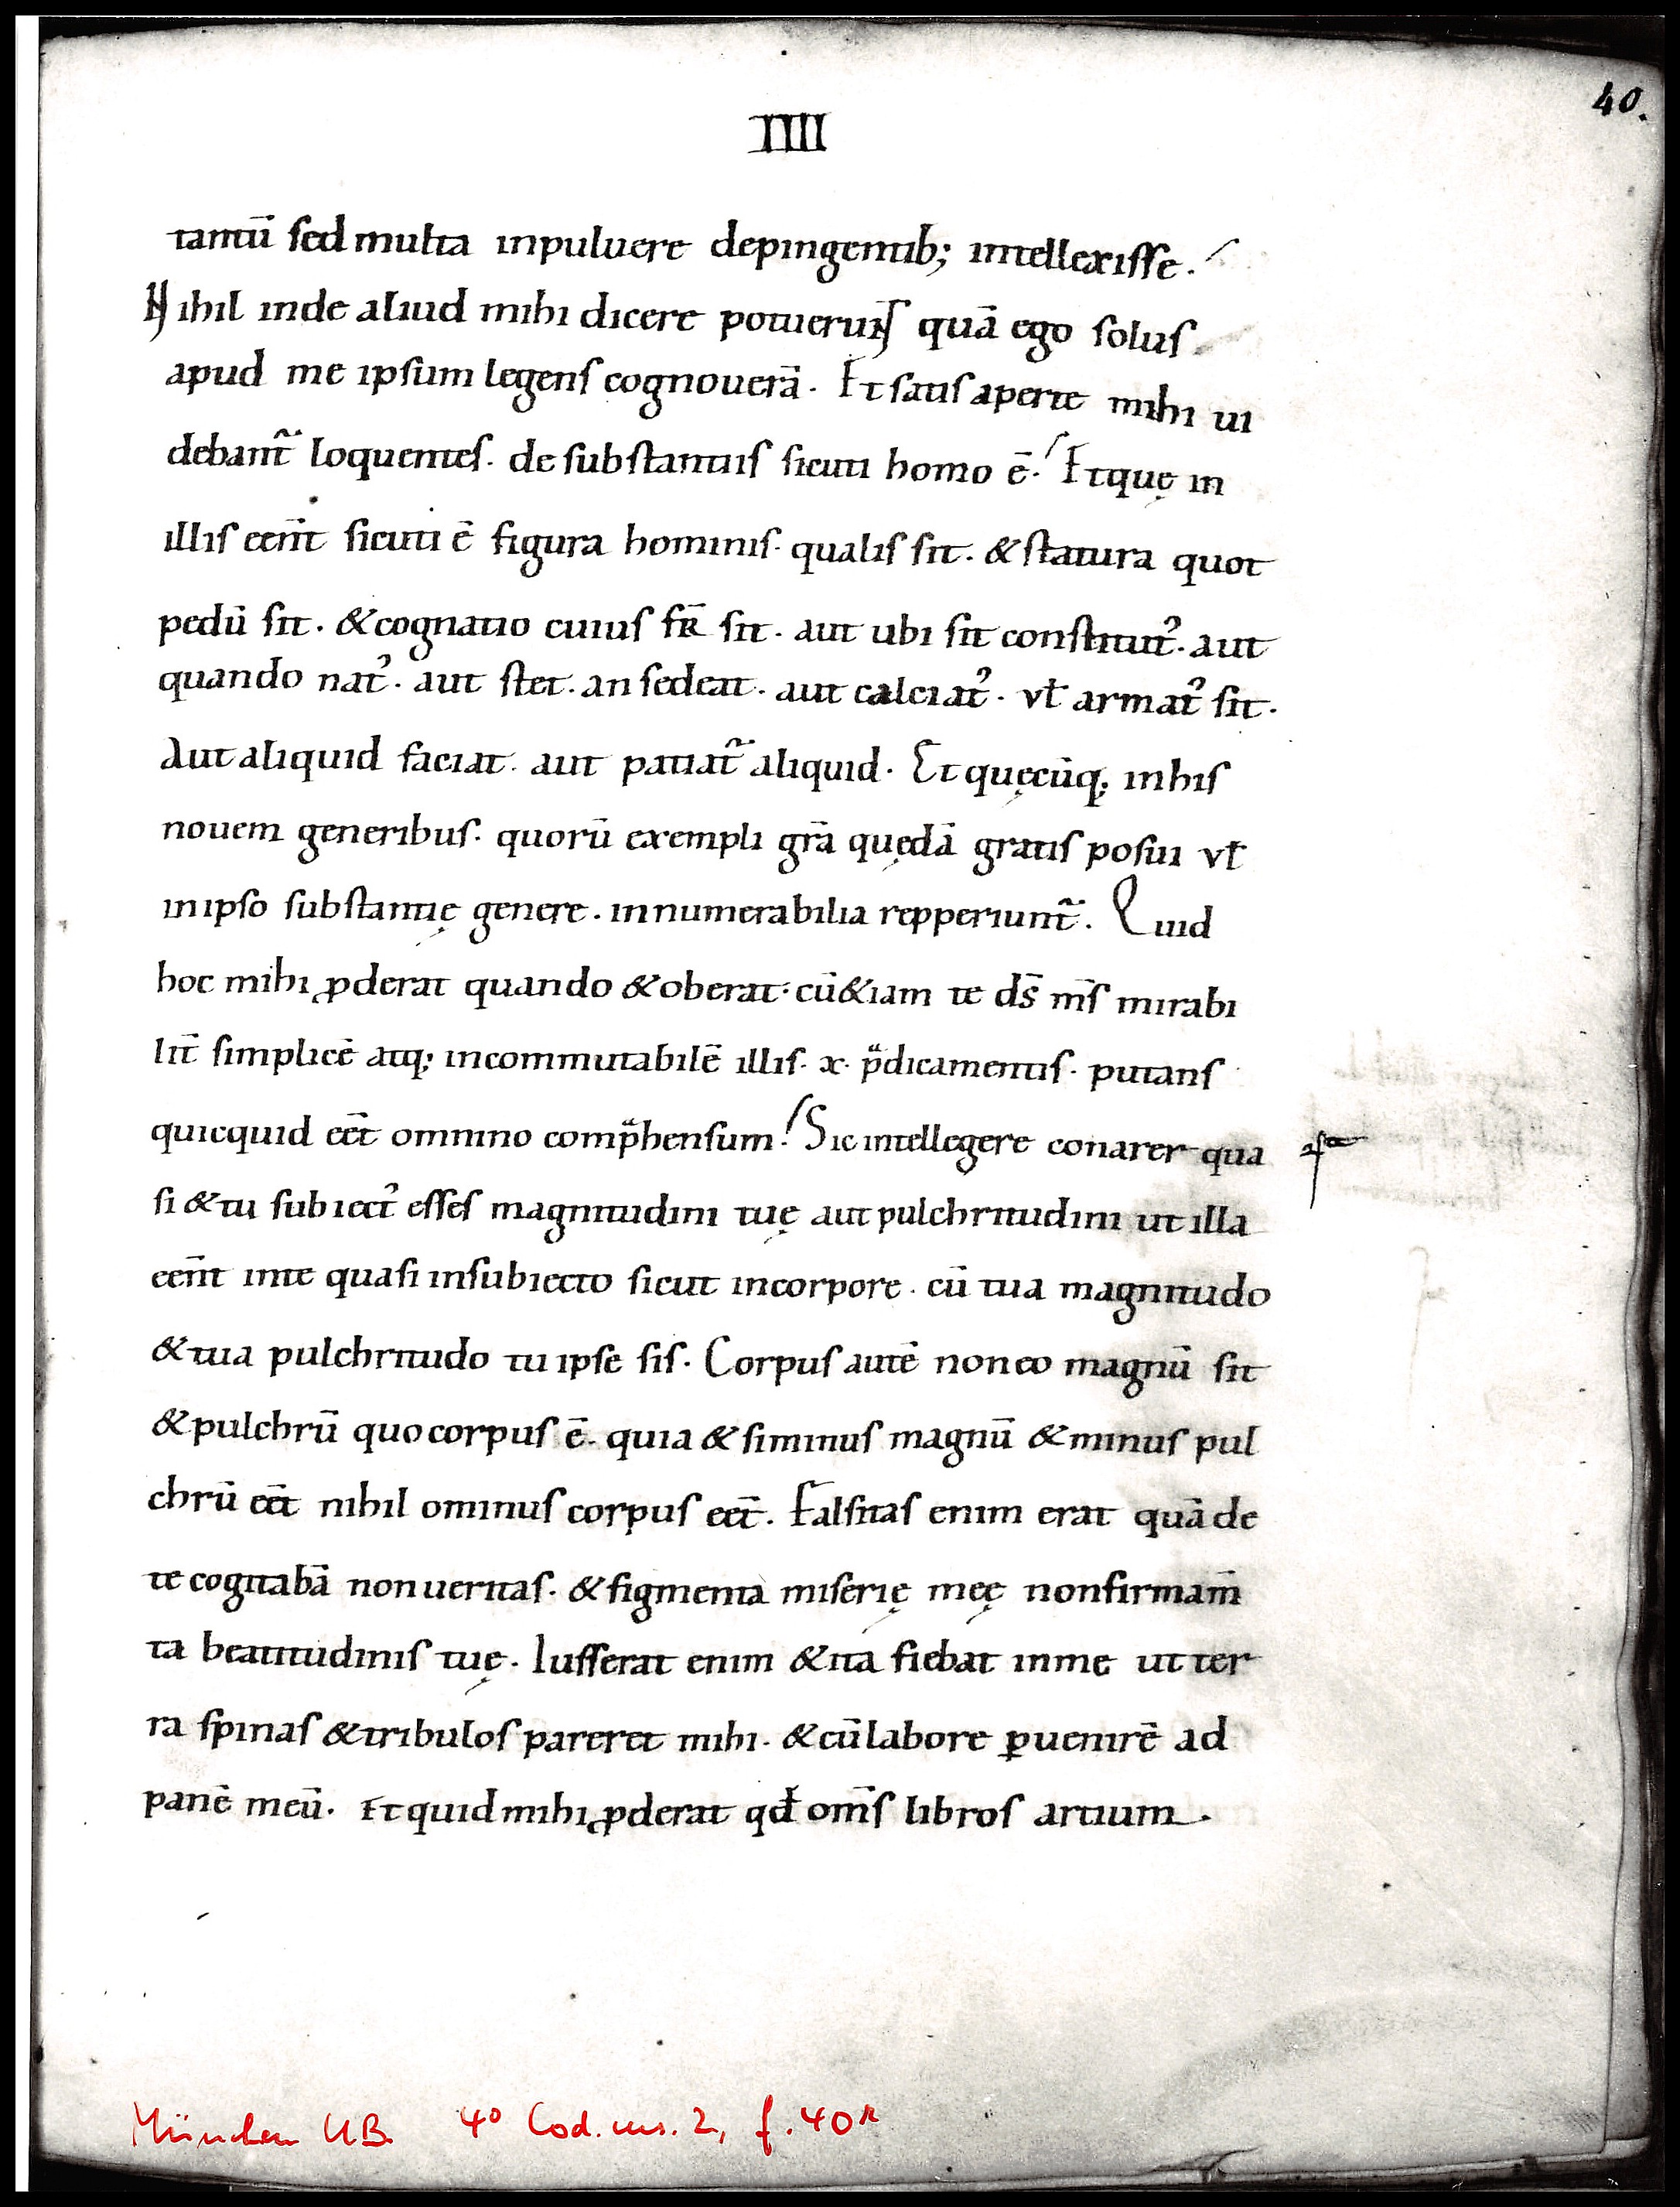 40.
IIII
tantū sed multa inpuluere depingentib; intellexisse.
Nihil inde aliud mihi dicere potuerunt quā ego solus
apud me ipsum legens cognouerā. Et satis aperte mihi ui
debant̃ loquentes. de substantiis sicuti homo ē. Et quę in
illis eēnt sicuti ē figura hominis. qualis sit. & statura quot
pedū sit. & cognatio cuius fr̄ sit. aut ubi sit constitut᾽. aut
quando nat᾽. aut stet. an sedeat. aut calciat᾽. vł armat᾽ sit.
Aut aliquid faciat. aut patiat̃ aliquid. Et quęcūq; inhis
nouem generibus. quorū exempli grā quędā gratis posui vł
inipso substantię genere. innumerabilia repperiunt̃. Quid
hoc mihi ꝓderat quando & oberat. cū &iam te ds̄ ms̄ mirabi
lit̄ simplicē atq; incommutabilē illis. x. p̈dicamentis. putans
quicquid eēt omnino comp̈hensum. Sic intellegere conarer qua
si & tu subiect᾽ esses magnitudini tuę aut pulchritudini ut illa
eēnt inte quasi insubiecto sicut incorpore. cū tua magnitudo
& tua pulchritudo tu ipse sis. Corpus autē non eo magnū sit
& pulchrū quo corpus ē. quia & siminus magnū & minus pul
chrū eēt nihil ominus corpus eēt. Falsitas enim erat quā de
te cogitabā non ueritas. & figmenta miserię meę nonfirmam̄
ta beatitudinis tuę. Iusserat enim & ita fiebat inme ut ter
ra spinas & tribulos pareret mihi. & cū labore ꝑuenirē ad
panē meū. Et quid mihi ꝓderat qđ om̄s libros artium.
München UB 4° Cod. ms. 2, f. 40r